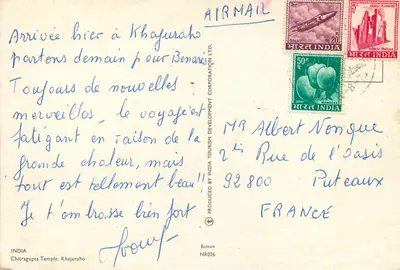 AIRMAIL
Arrivée hier à Khajuraho
partons demain pour Benares
Toujours de nouvelles
merveilles, le voyage est
fatigant en raison de la
grande chaleur, mais
tout est tellement beau!!
Je t'embrasse bien fort
INDIA
Chitragupta Temple, Khajuraho
PRODUCED BY INDIA TOURISM DEVELOPMENT CORPORATION LTD.
NR026
20
भारत INDIA
भारत INDIA
50
भारत INDIA
MR Albert
Rue de l'Oasis
92800 Puteaux
FRANCE